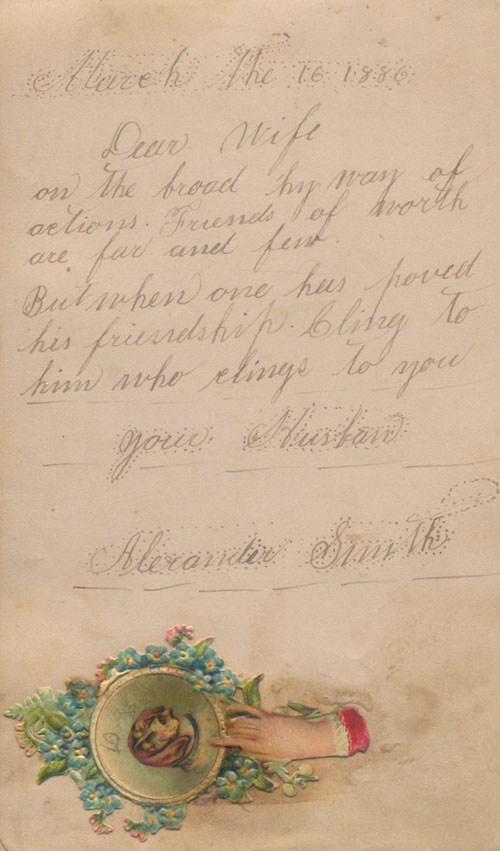 March The 16 1886
Dear Wife
on the broad hy way of
actions. Friends of worth
are far and few.
But when one has poved
his friendship. Cling to
him who clings to you
your Husban
Alexander Smith